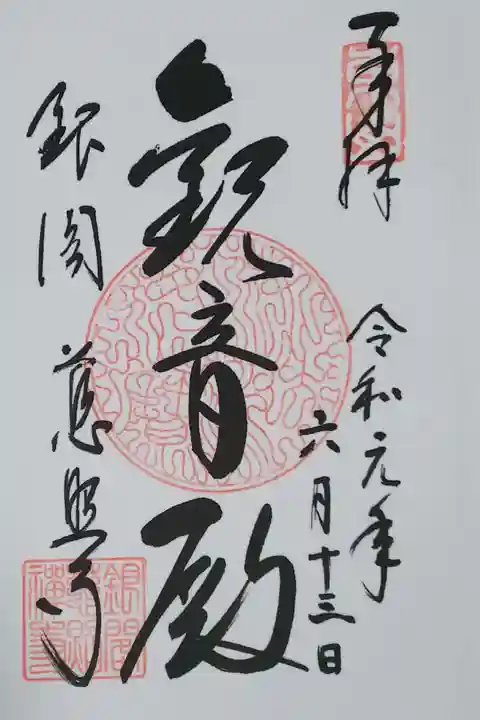 奉拝
令和元年
六月十三日
観音殿
銀閣 慈照寺